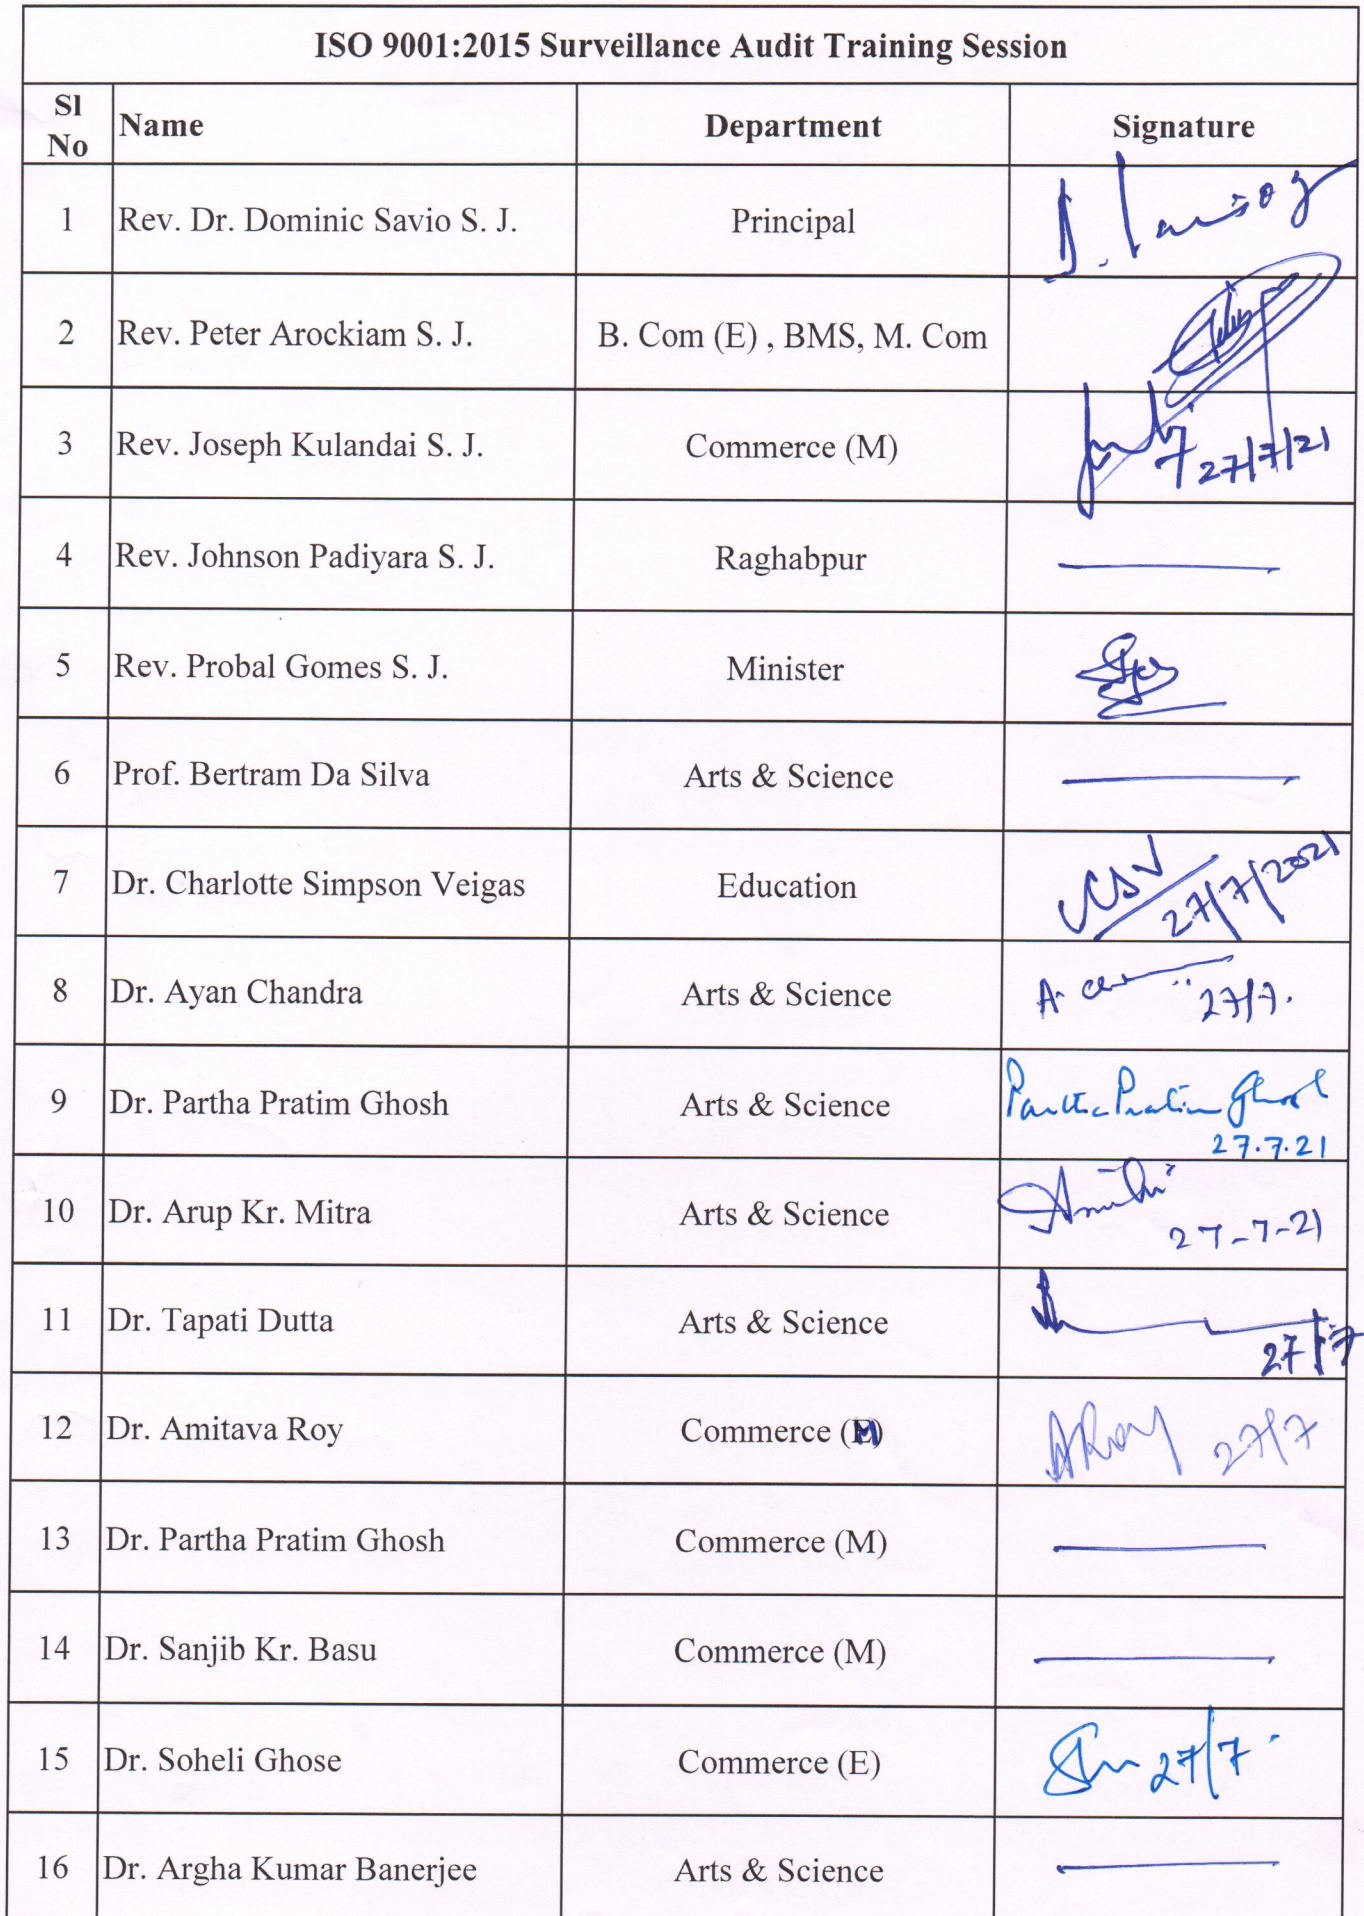 ISO 9001:2015 Surveillance Audit Training Session
Sl No Name Department Signature
1 Rev. Dr. Dominic Savio S. J. Principal
2 Rev. Peter Arockiam S. J. B. Com (E) , BMS, M. Com
3 Rev. Joseph Kulandai S. J. Commerce (M) 27/7/21
4 Rev. Johnson Padiyara S. J. Raghabpur
5 Rev. Probal Gomes S. J. Minister
6 Prof. Bertram Da Silva Arts & Science
7 Dr. Charlotte Simpson Veigas Education CSV 27/7/2021
8 Dr. Ayan Chandra Arts & Science 27/7.
9 Dr. Partha Pratim Ghosh Arts & Science Partha Pratim Ghosh
27.7.21
10 Dr. Arup Kr. Mitra Arts & Science
27-7-21
11 Dr. Tapati Dutta Arts & Science
27/7
12 Dr. Amitava Roy Commerce (M) ARoy 27/7
13 Dr. Partha Pratim Ghosh Commerce (M)
14 Dr. Sanjib Kr. Basu Commerce (M)
15 Dr. Soheli Ghose Commerce (E) 27/7
16 Dr. Argha Kumar Banerjee Arts & Science